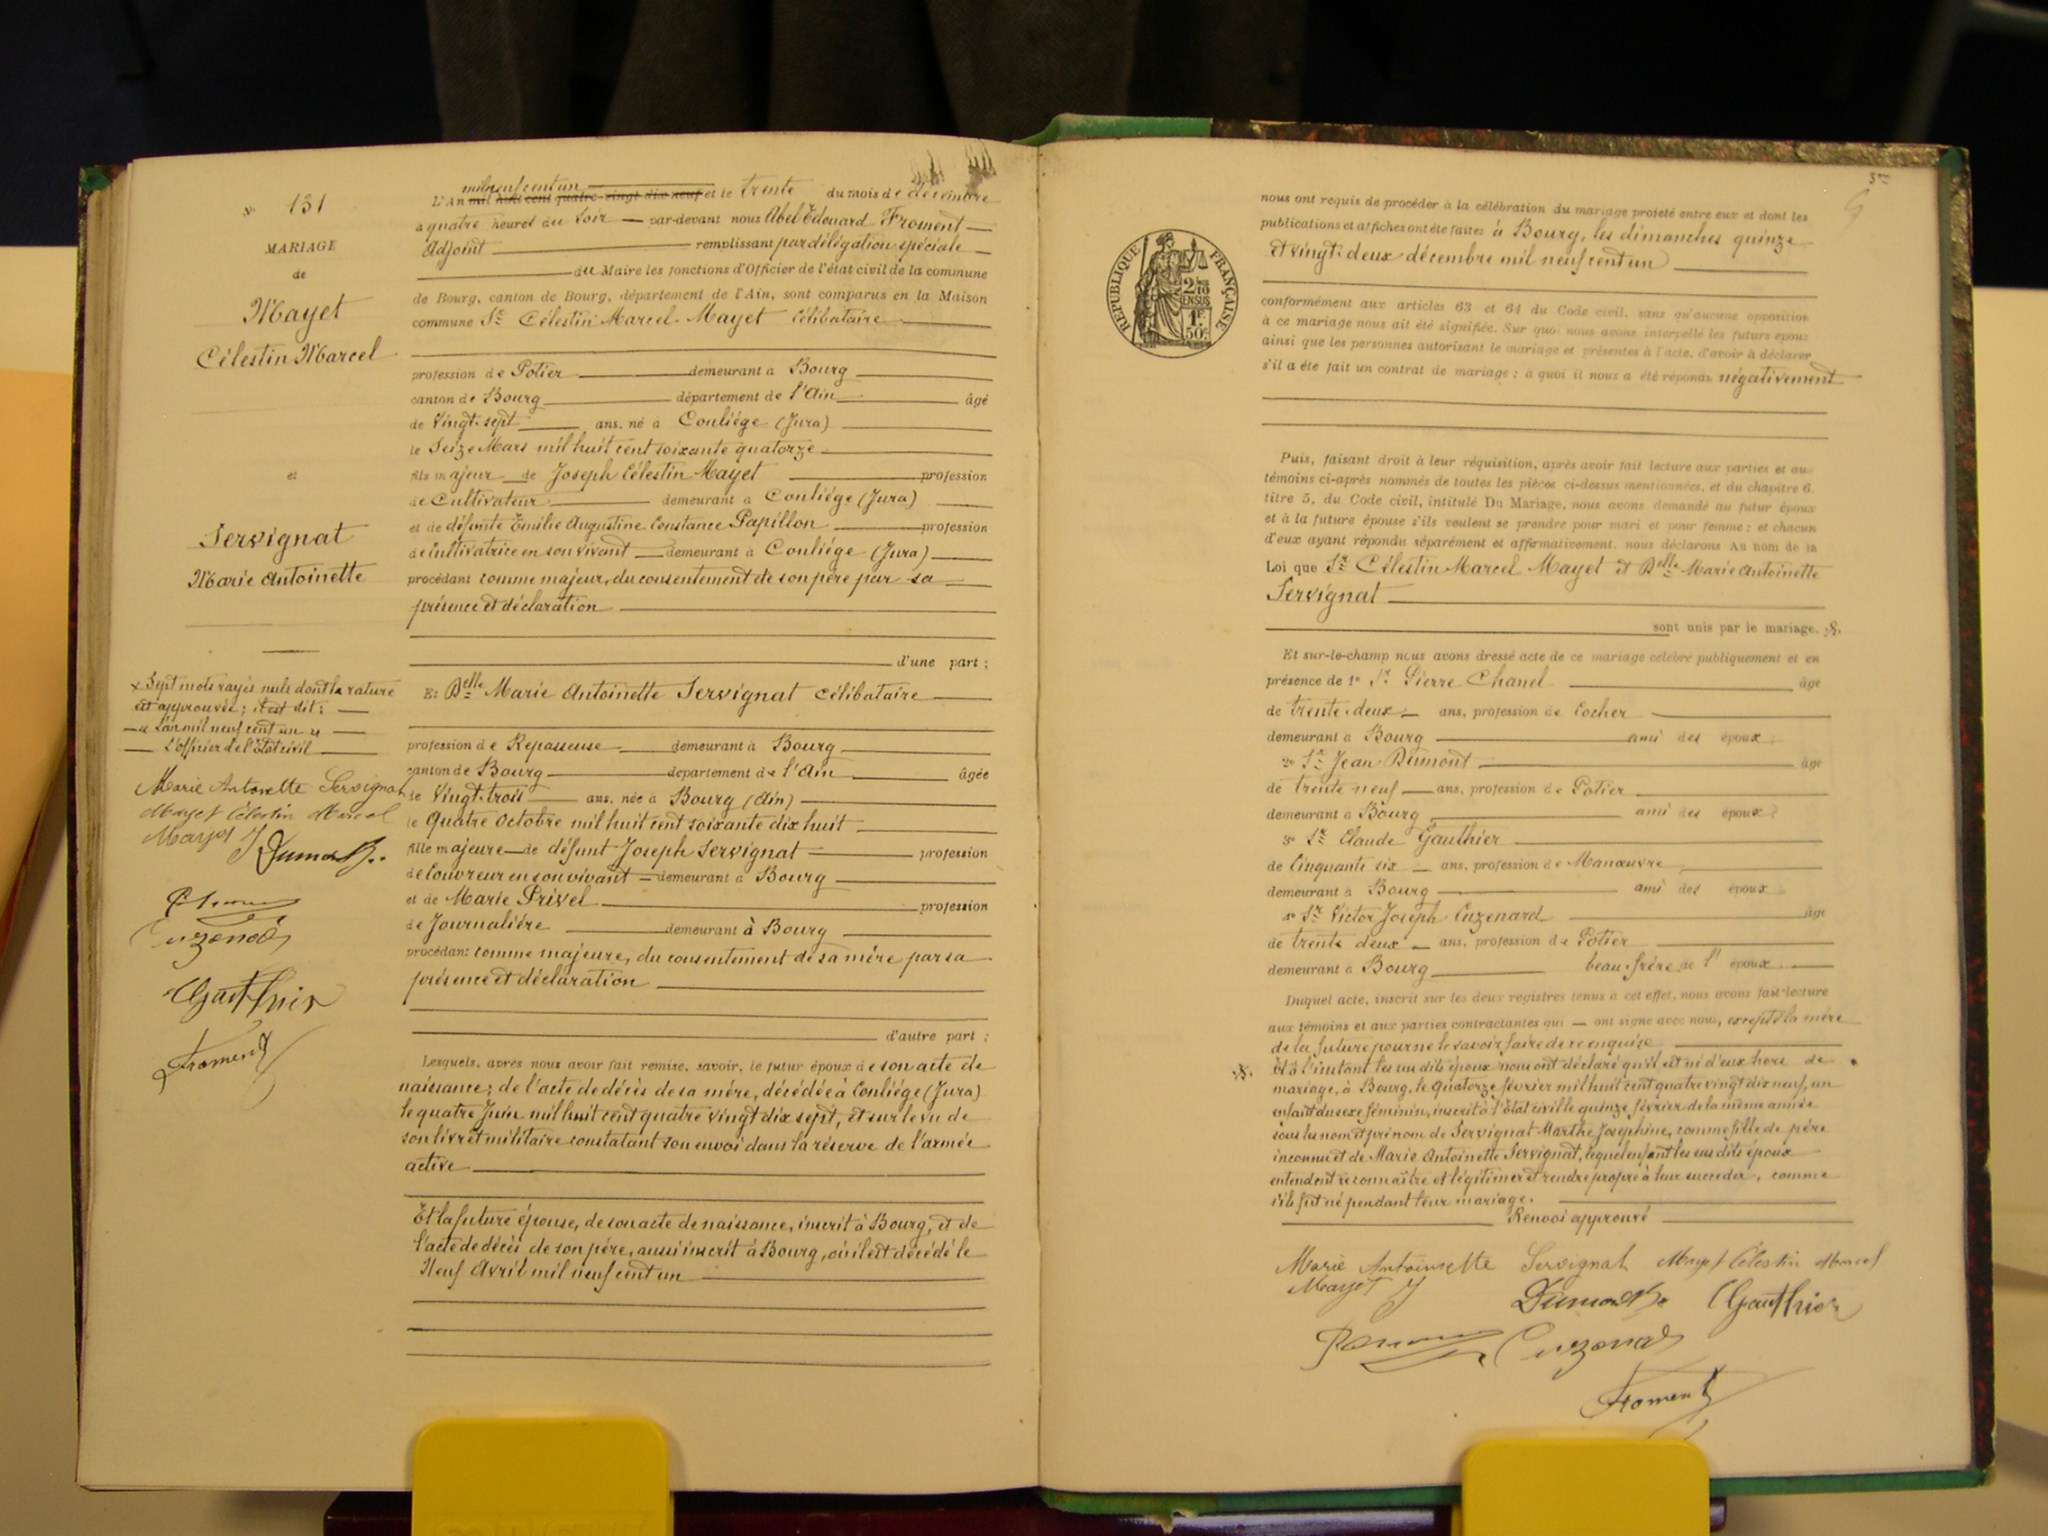 N° 131
MARIAGE
de
Mayet
Célestin Marcel
et
Servignat
Marie Antoinette
x Sept mots rayés nuls dont la rature
est approuvée; il est dit:
L'an mil neuf cent un
L'officier de l'État civil
Marie Antoinette Servignat
Mayet Célestin Marcel
Mayet J Dumont
Cuzenard
CGauthier
Froment
mil neuf cent un
L'An mil huit cent quatre-vingt-dix-neuf et le trente du mois de décembre
a quatre heures du soir par-devant nous Abel Edouard Froment
Adjoint remplissant par délégation spéciale
du Maire les fonctions d'Officier de l'état civil de la commune
de Bourg, canton de Bourg, département de l'Ain, sont comparus en la Maison
commune Sr Célestin Marcel Mayet célibataire
profession de Potier demeurant à Bourg
canton de Bourg département de l'Ain âgé
de Vingt-sept ans, né à Conliége (Jura)
le Seize Mars mil huit cent soixante quatorze
fils majeur de Joseph Célestin Mayet profession
de Cultivateur demeurant à Conliége (Jura)
et de défunte Emilie Augustine Constance Papillon profession
de Cultivatrice en son vivant demeurant à Conliége (Jura)
procédant comme majeur, du consentement de son père par sa
présence et déclaration
d'une part;
Et Delle Marie Antoinette Servignat célibataire
profession de Repasseuse demeurant à Bourg
canton de Bourg département de l'Ain âgée
de Vingt-trois ans, née à Bourg (Ain)
le Quatre Octobre mil huit cent soixante dix huit
fille majeure de défunt Joseph Servignat profession
de Couvreur en son vivant demeurant à Bourg
et de Marie Privel profession
de Journalière demeurant à Bourg
procédant comme majeure, du consentement de sa mère par sa
présence et déclaration
d'autre part;
Lesquels, après nous avoir fait remise, savoir, le futur époux de son acte de
naissance; de l'acte de décès de sa mère, décédée à Conliége (Jura)
le quatre Juin mil huit cent quatre vingt dix sept, et sur le vu de
son livret militaire constatant son envoi dans la réserve de l'armée
active
Et la future épouse, de son acte de naissance, inscrit à Bourg, et de
l'acte de décès de son père, aussi inscrit à Bourg, où il est décédé le
Neuf Avril mil neuf cent un
RÉPUBLIQUE FRANÇAISE
2/10
EN SUS
1F
50c
nous ont requis de procéder à la célébration du mariage projeté entre eux et dont les
publications et affiches ont été faites à Bourg, les dimanches quinze
et vingt-deux décembre mil neuf cent un
conformément aux articles 63 et 64 du Code civil, sans qu'aucune opposition
à ce mariage nous ait été signifiée. Sur quoi nous avons interpellé les futurs époux
ainsi que les personnes autorisant le mariage et présentes à l'acte, d'avoir à déclarer
s'il a été fait un contrat de mariage; à quoi il nous a été répondu négativement
Puis, faisant droit à leur réquisition, après avoir fait lecture aux parties et aux
témoins ci-après nommés de toutes les pièces ci-dessus mentionnées, et du chapitre 6,
titre 5, du Code civil, intitulé Du Mariage, nous avons demandé au futur époux
et à la future épouse s'ils veulent se prendre pour mari et pour femme; et chacun
d'eux ayant répondu séparément et affirmativement, nous déclarons Au nom de la
Loi que Sr Célestin Marcel Mayet et Delle Marie Antoinette
Servignat
sont unis par le mariage.
Et sur-le-champ nous avons dressé acte de ce mariage célébré publiquement et en
présence de 1° Sr Pierre Chanel âgé
de trente-deux ans, profession de Cocher
demeurant à Bourg ami des époux
2° Sr Jean Dumont âgé
de trente neuf ans, profession de Potier
demeurant à Bourg ami des époux
3° Sr Claude Gauthier
de Cinquante six ans, profession de Manœuvre
demeurant à Bourg ami des époux
4° Sr Victor Joseph Cuzenard âgé
de trente deux ans, profession de Potier
demeurant à Bourg beau-frère de l'époux
Duquel acte, inscrit sur les deux registres tenus à cet effet, nous avons fait lecture
aux témoins et aux parties contractantes qui ont signé avec nous, excepté la mère
de la future pour ne le savoir faire de ce enquise
Et à l'instant les susdits époux nous ont déclaré qu'il est né d'eux hors de
mariage, à Bourg, le quatorze février mil huit cent quatre vingt dix neuf, un
enfant du sexe féminin, inscrit à l'État civil le quinze février de la même année
sous les nom et prénom de Servignat Marthe Joséphine, comme fille de père
inconnu et de Marie Antoinette Servignat, lequel enfant les susdits époux
entendent reconnaître et légitimer et rendre propre à leur succéder, comme
s'il fut né pendant leur mariage.
Renvoi approuvé
Marie Antoinette Servignat Mayet Célestin Marcel
Mayet J Dumont CGauthier
Cuzenard
Froment